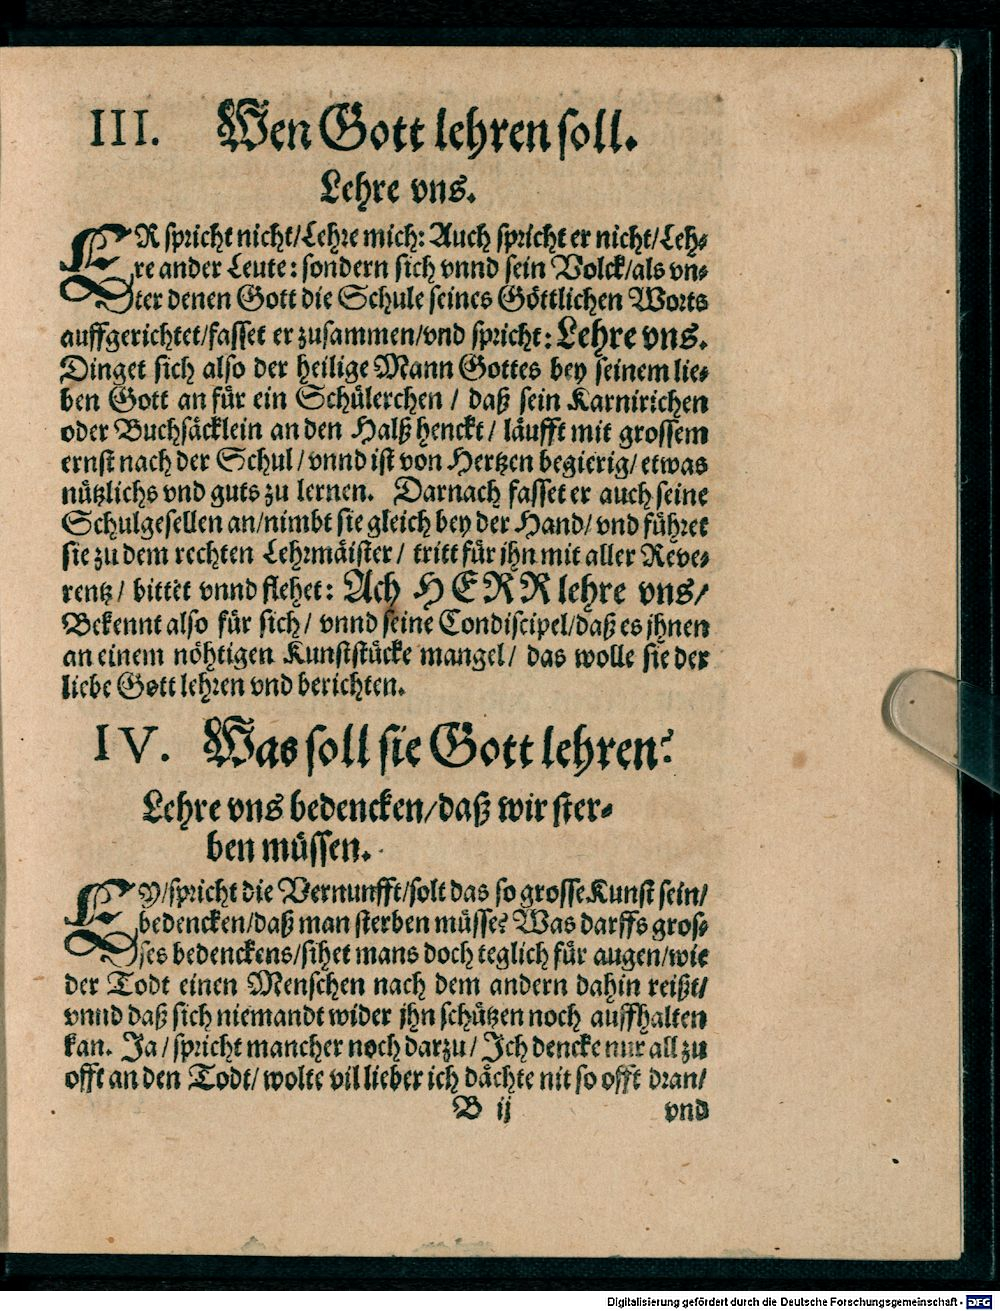 III. Wen Gott lehren soll.
Lehre vns.
ER spricht nicht/Lehre mich: Auch spricht er nicht/Leh-
re ander Leute: sondern sich vnnd sein Volck/als vn-
ter denen Gott die Schule seines Göttlichen Worts
auffgerichtet/fasset er zusammen/vnd spricht: Lehre vns.
Dinget sich also der heilige Mann Gottes bey seinem lie-
ben Gott an für ein Schülerchen / daß sein Karnirichen
oder Buchsäcklein an den Halß henckt / läufft mit grossem
ernst nach der Schul / vnnd ist von Hertzen begierig / etwas
nützlichs vnd guts zu lernen. Darnach fasset er auch seine
Schulgesellen an/nimbt sie gleich bey der Hand/ vnd führet
sie zu dem rechten Lehrmäister / tritt für jhn mit aller Reve-
rentz / bittet vnnd flehet: Ach HERR lehre vns/
Bekennt also für sich / vnnd seine Condiscipel/daß es jhnen
an einem nöhtigen Kunststücke mangel / das wolle sie der
liebe Gott lehren vnd berichten.
IV. Was soll sie Gott lehren?
Lehre vns bedencken/daß wir ster-
ben müssen.
EY/spricht die Vernunfft/solt das so grosse Kunst sein/
bedencken/daß man sterben müsse? Was darffs gros-
ses bedenckens/sihet mans doch teglich für augen/wie
der Todt einen Menschen nach dem andern dahin reißt/
vnnd daß sich niemandt wider jhn schützen noch auffhalten
kan. Ja / spricht mancher noch darzu / Ich dencke nur all zu
offt an den Todt/ wolte vil lieber ich dächte nit so offt dran/
B ij vnd
Digitalisierung gefördert durch die Deutsche Forschungsgemeinschaft - DFG